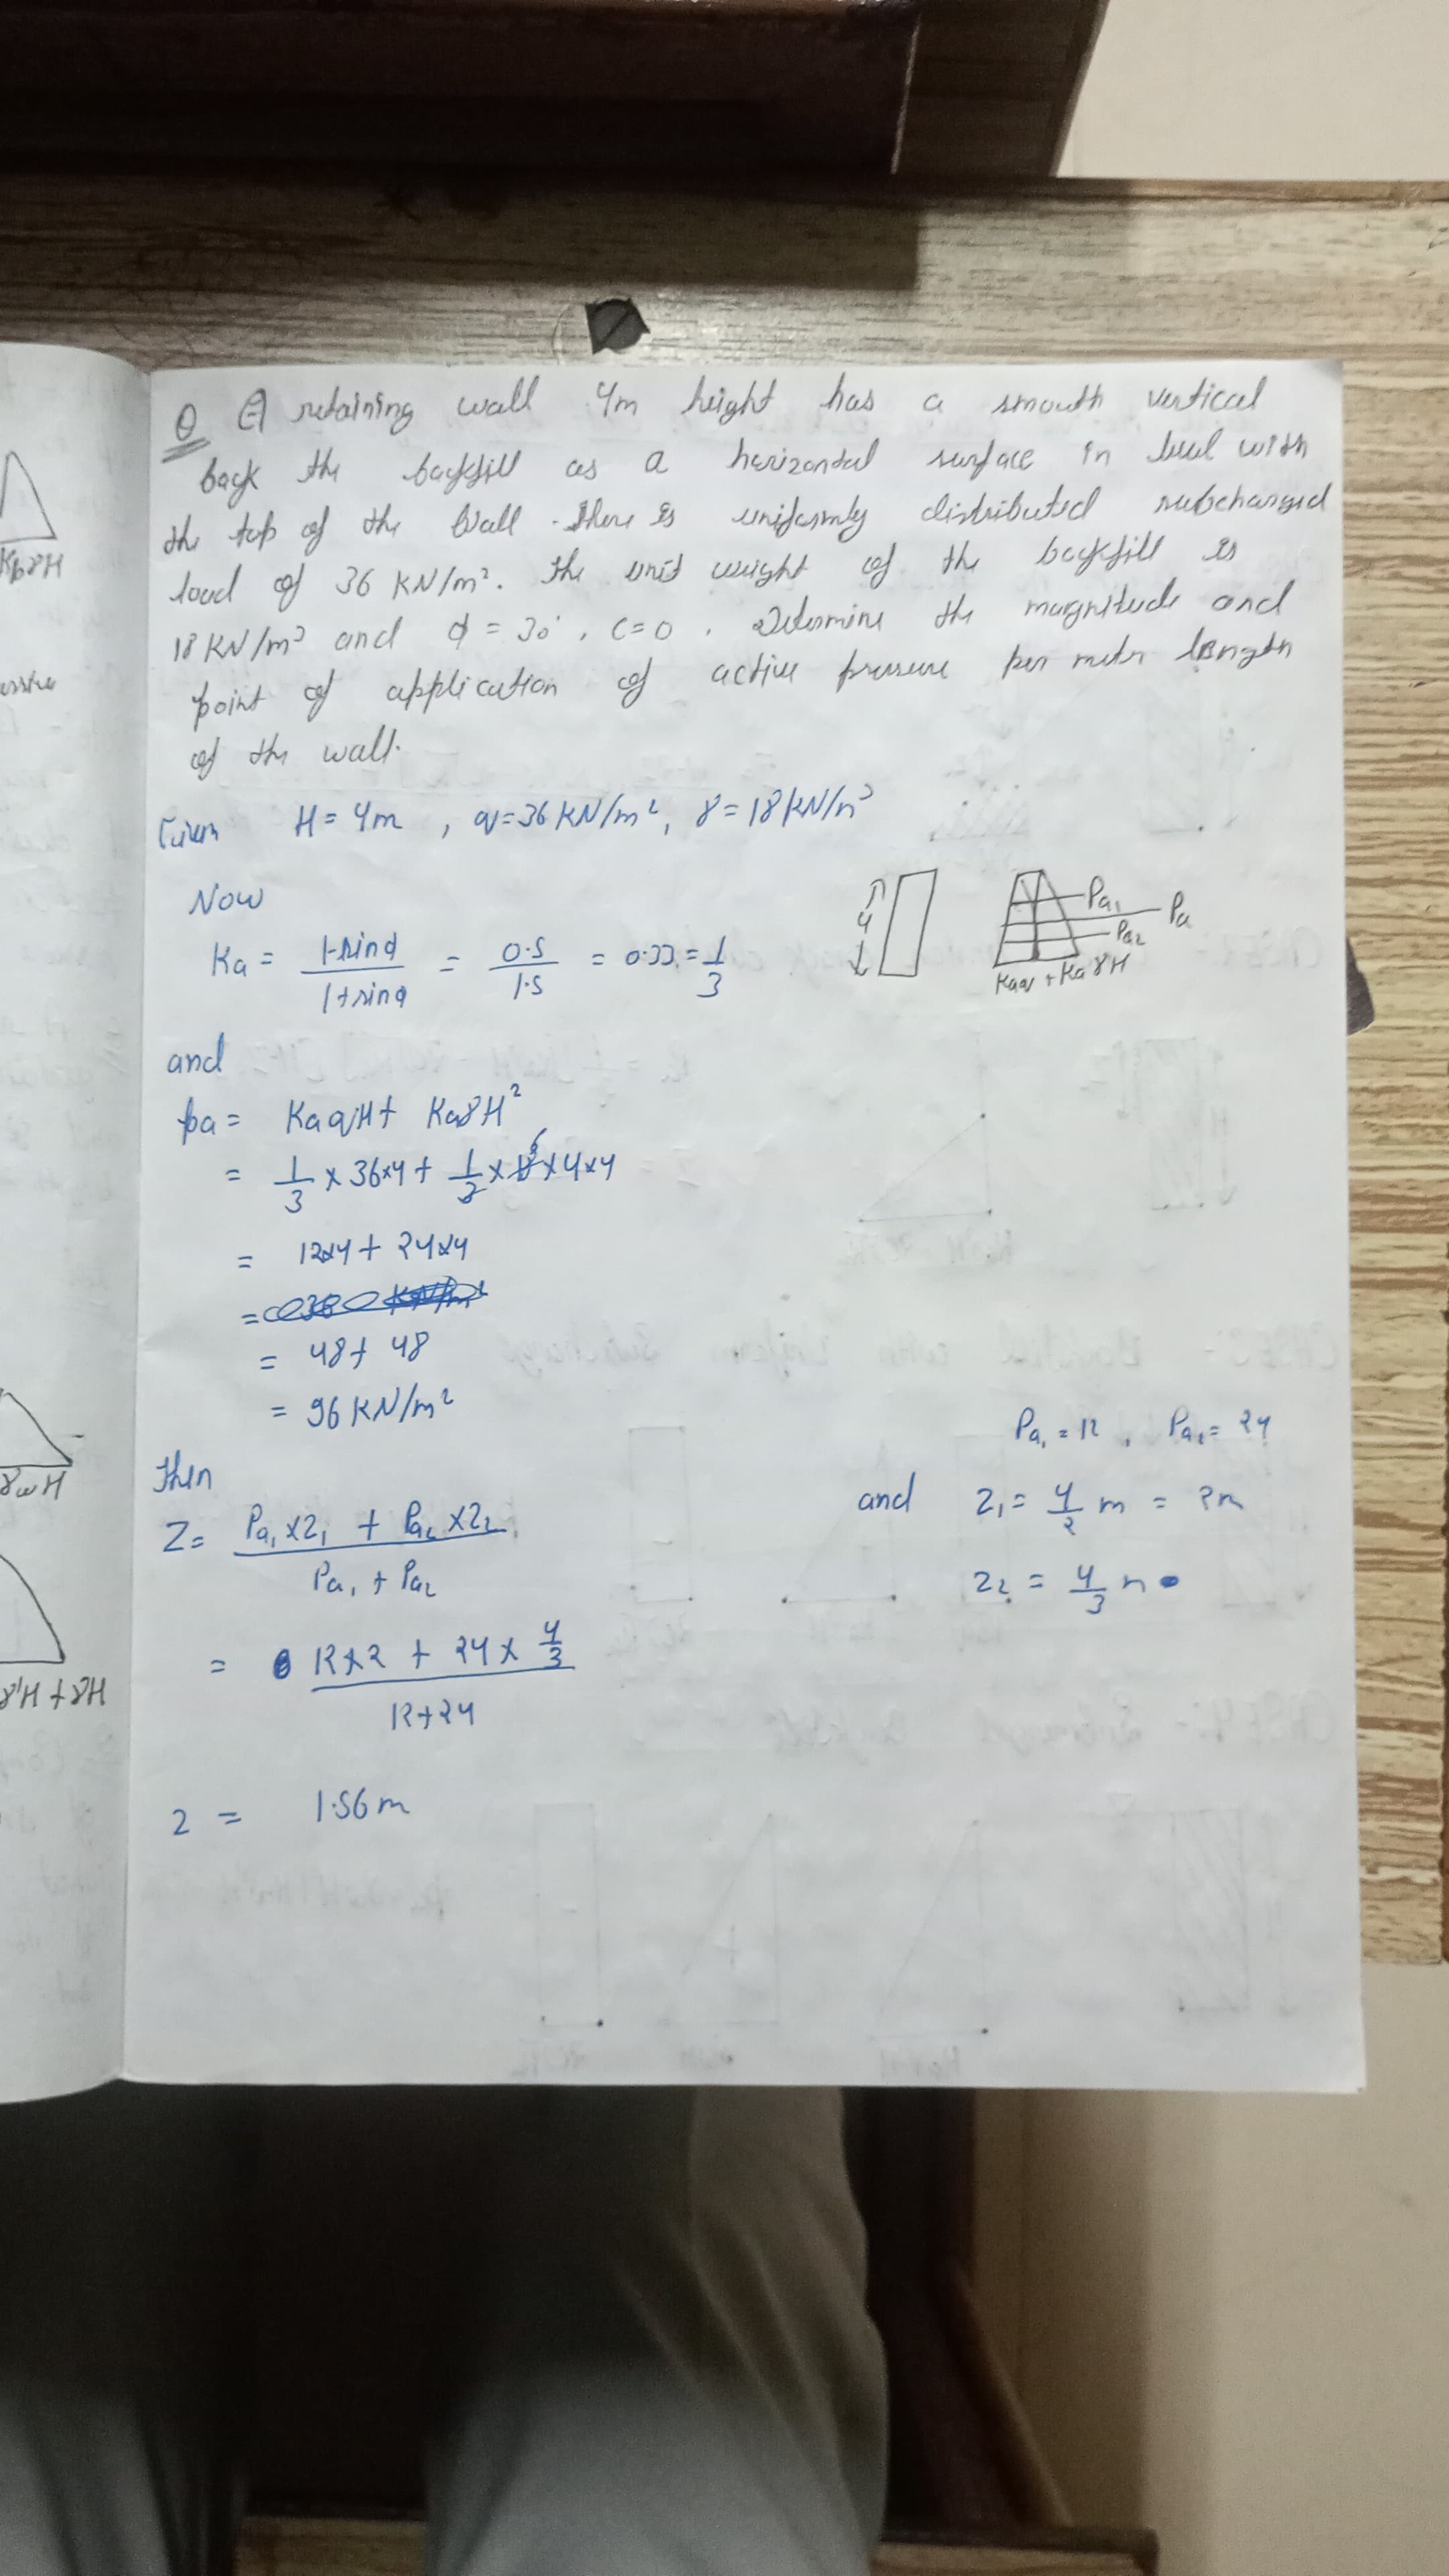 KpγH
essive
γωH
γ'H + γH
Q A retaining wall 4m height has a smooth vertical
back the backfill as a horizontal surface in level with
the top of the Wall. There is uniformly distributed subcharged
load of 36 KN/m². The unit weight of the backfill is
18 KN/m³ and ϕ = 30°, C=0. Determine the magnitude and
point of application of active pressure per meter length
of the wall.
Given H = 4m , q = 36 KN/m², γ = 18 KN/m³
Now
Ka = 1-sinϕ / 1+sinϕ = 0.5 / 1.5 = 0.33 = 1/3
4
Pa1
Pa
Pa2
Kaq + KaγH
and
pa = KaqH + KaγH²
= 1/3 × 36×4 + 1/2 × 18 6 ×4×4
= 12×4 + 24×4
= 48 + 48
= 96 KN/m²
Then
Z = Pa1 × Z1 + Pa2 × Z2 / Pa1 + Pa2
Pa1 = 12 , Pa2 = 24
and Z1 = 4/2 m = 2m
Z2 = 4/3 m
= 12×2 + 24 × 4/3 / 12+24
Z = 1.56 m